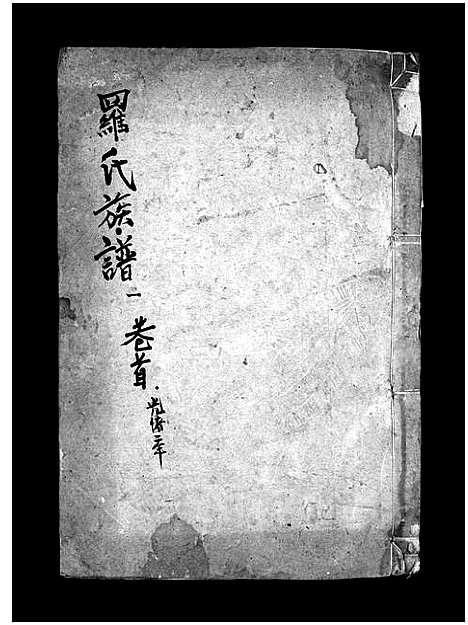 羅氏族譜
一 卷首
光緒二年